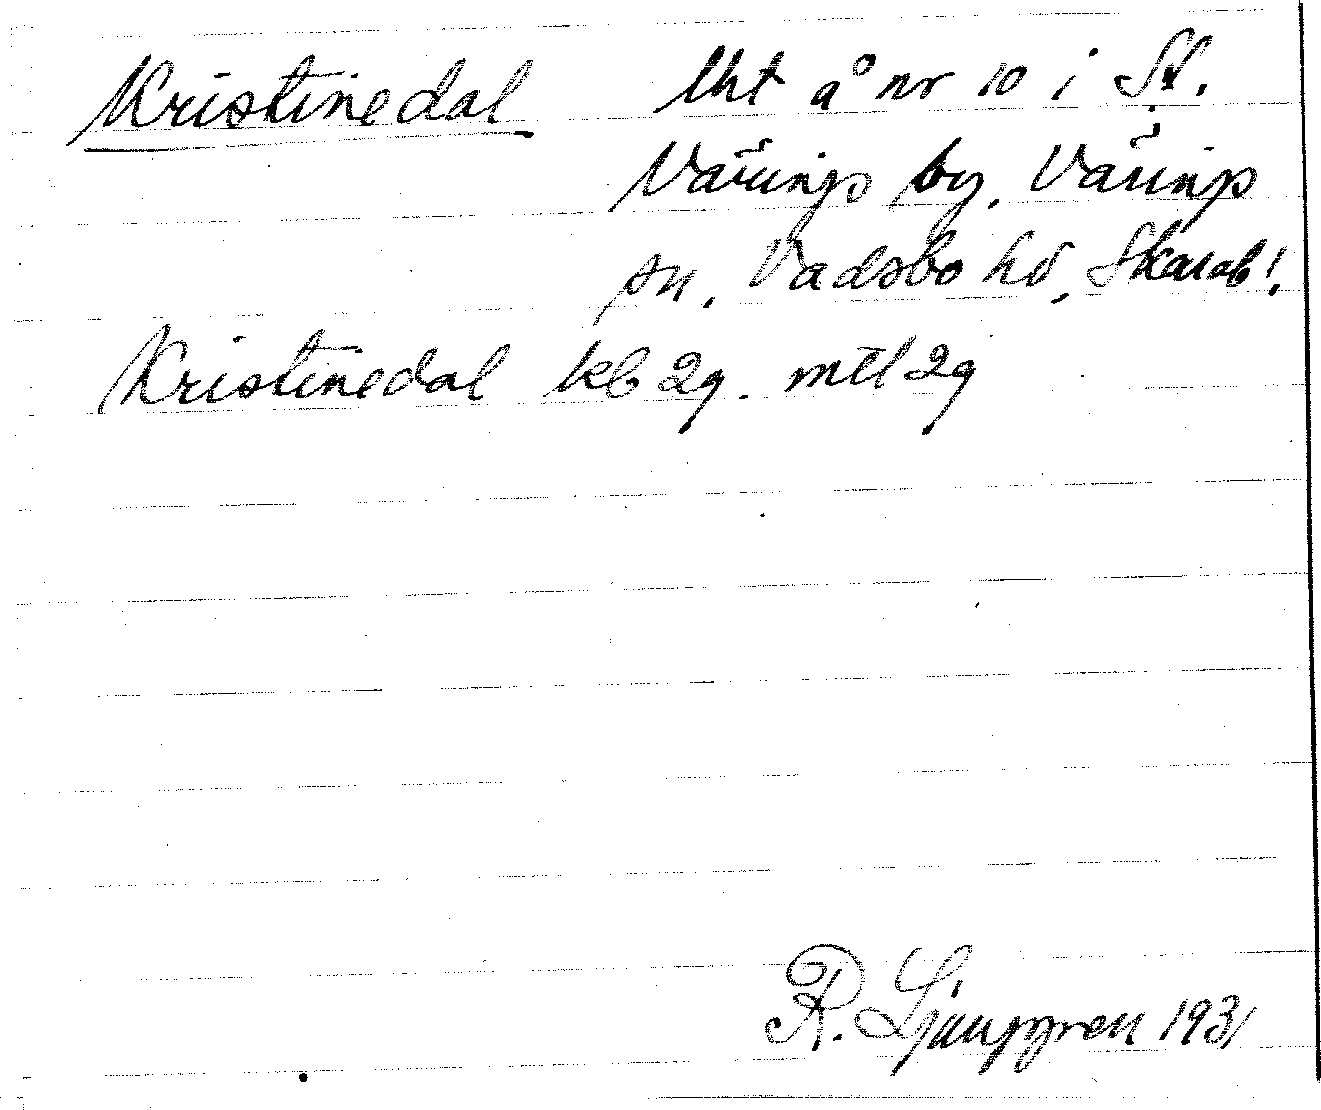 Kristinedal lht å nr 10 i St.
Värings by, Värings
sn, Vadsbo hd, Skarab!.
Kristinedal kb 29. mtl 29
R. Ljunggren 1931